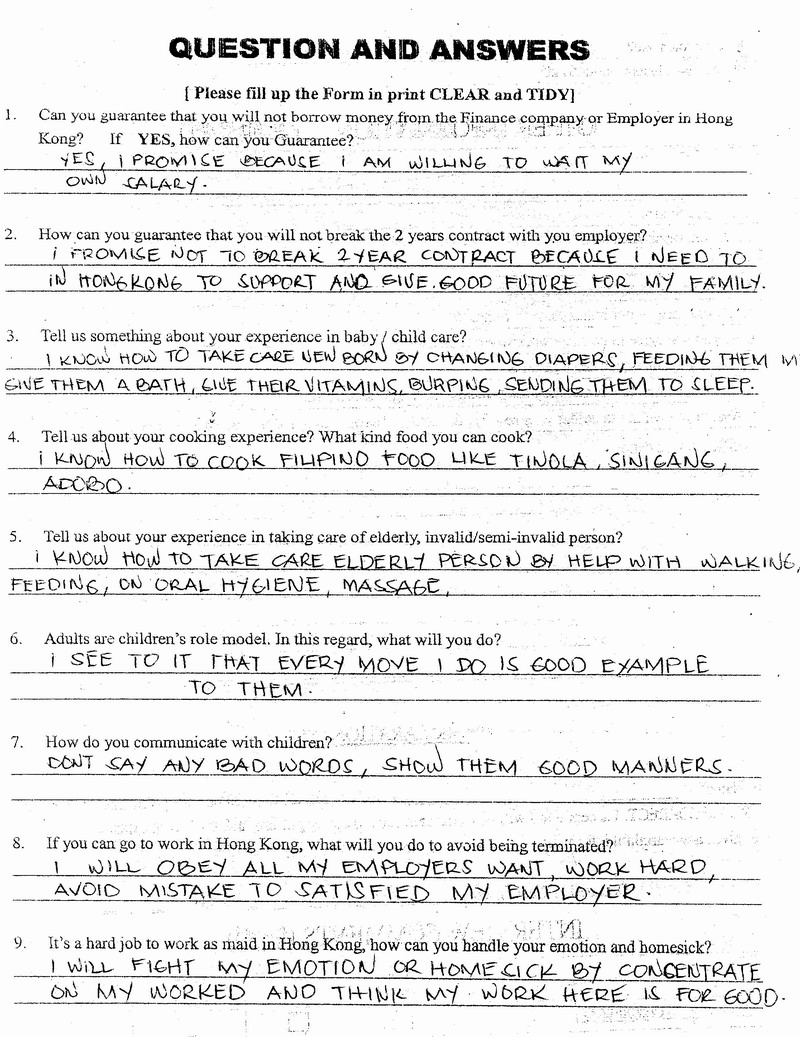 QUESTION AND ANSWERS
[ Please fill up the Form in print CLEAR and TIDY]
1. Can you guarantee that you will not borrow money from the Finance company or Employer in Hong
Kong? If YES, how can you Guarantee?
YES, I PROMISE BECAUSE I AM WILLING TO WAIT MY
OWN SALARY.
2. How can you guarantee that you will not break the 2 years contract with you employer?
I PROMISE NOT TO BREAK 2 YEAR CONTRACT BECAUSE I NEED TO
IN HONGKONG TO SUPPORT AND GIVE GOOD FUTURE FOR MY FAMILY.
3. Tell us something about your experience in baby / child care?
I KNOW HOW TO TAKE CARE NEW BORN BY CHANGING DIAPERS, FEEDING THEM
GIVE THEM A BATH, GIVE THEIR VITAMINS, BURPING, SENDING THEM TO SLEEP.
4. Tell us about your cooking experience? What kind food you can cook?
I KNOW HOW TO COOK FILIPINO FOOD LIKE TINOLA, SINIGANG,
ADOBO.
5. Tell us about your experience in taking care of elderly, invalid/semi-invalid person?
I KNOW HOW TO TAKE CARE ELDERLY PERSON BY HELP WITH WALKING,
FEEDING, ON ORAL HYGIENE, MASSAGE,
6. Adults are children's role model. In this regard, what will you do?
I SEE TO IT THAT EVERY MOVE I DO IS GOOD EXAMPLE
TO THEM.
7. How do you communicate with children?
DONT SAY ANY BAD WORDS, SHOW THEM GOOD MANNERS.
8. If you can go to work in Hong Kong, what will you do to avoid being terminated?
I WILL OBEY ALL MY EMPLOYERS WANT, WORK HARD,
AVOID MISTAKE TO SATISFIED MY EMPLOYER.
9. It's a hard job to work as maid in Hong Kong, how can you handle your emotion and homesick?
I WILL FIGHT MY EMOTION OR HOMESICK BY CONCENTRATE
ON MY WORKED AND THINK MY WORK HERE IS FOR GOOD.